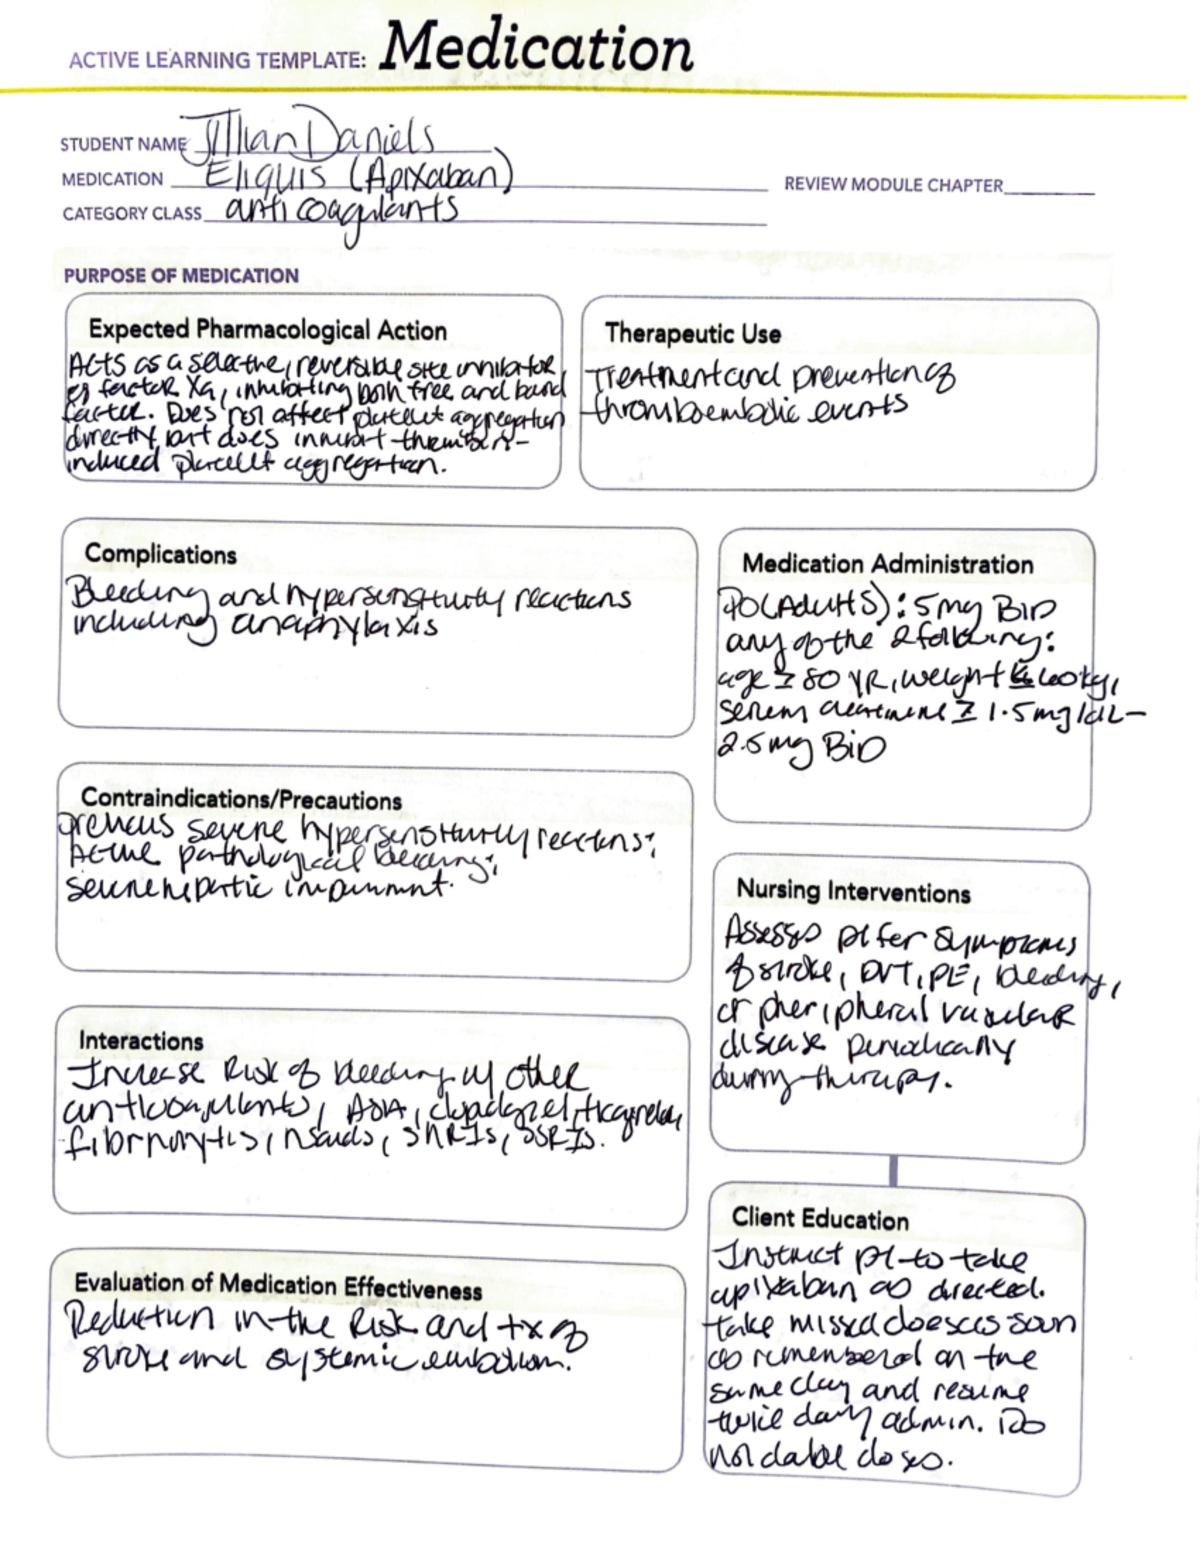 ACTIVE LEARNING TEMPLATE: Medication
STUDENT NAME Jillian Daniels
MEDICATION Eliquis (Apixaban)
REVIEW MODULE CHAPTER
CATEGORY CLASS anticoagulants
PURPOSE OF MEDICATION
Expected Pharmacological Action
Acts as a selective, reversible site inhibitor
of factor Xa, inhibiting both free and bound
factor. Does not affect platelet aggregation
directly, but does inhibit thrombin-
induced platelet aggregation.
Therapeutic Use
Treatment and prevention of
thromboembolic events
Complications
Bleeding and hypersensitivity reactions
including anaphylaxis
Medication Administration
PO (Adults): 5mg BID
any of the 2 following:
age ≥ 80 YR, weight ≤ 60 kg,
serum creatinine ≥ 1.5 mg/dL-
2.5 mg BID
Contraindications/Precautions
previous severe hypersensitivity reactions;
Active pathological bleeding;
severe hepatic impairment.
Nursing Interventions
Assess pt for symptoms
of stroke, DVT, PE, bleeding,
or pheripheral vascular
disease periodically
during therapy.
Interactions
Increase Risk of bleeding w/ other
anticoagulants, ASA, clopidogrel, ticagrelor,
fibrinolytics, nsaids, SNRIs, SSRIs.
Client Education
Instruct pt to take
apixaban as directed.
take missed doeses soon
as remembered on the
same day and resume
twice daily admin. Do
not double doses.
Evaluation of Medication Effectiveness
Reduction in the Risk and tx of
stroke and systemic embolism.